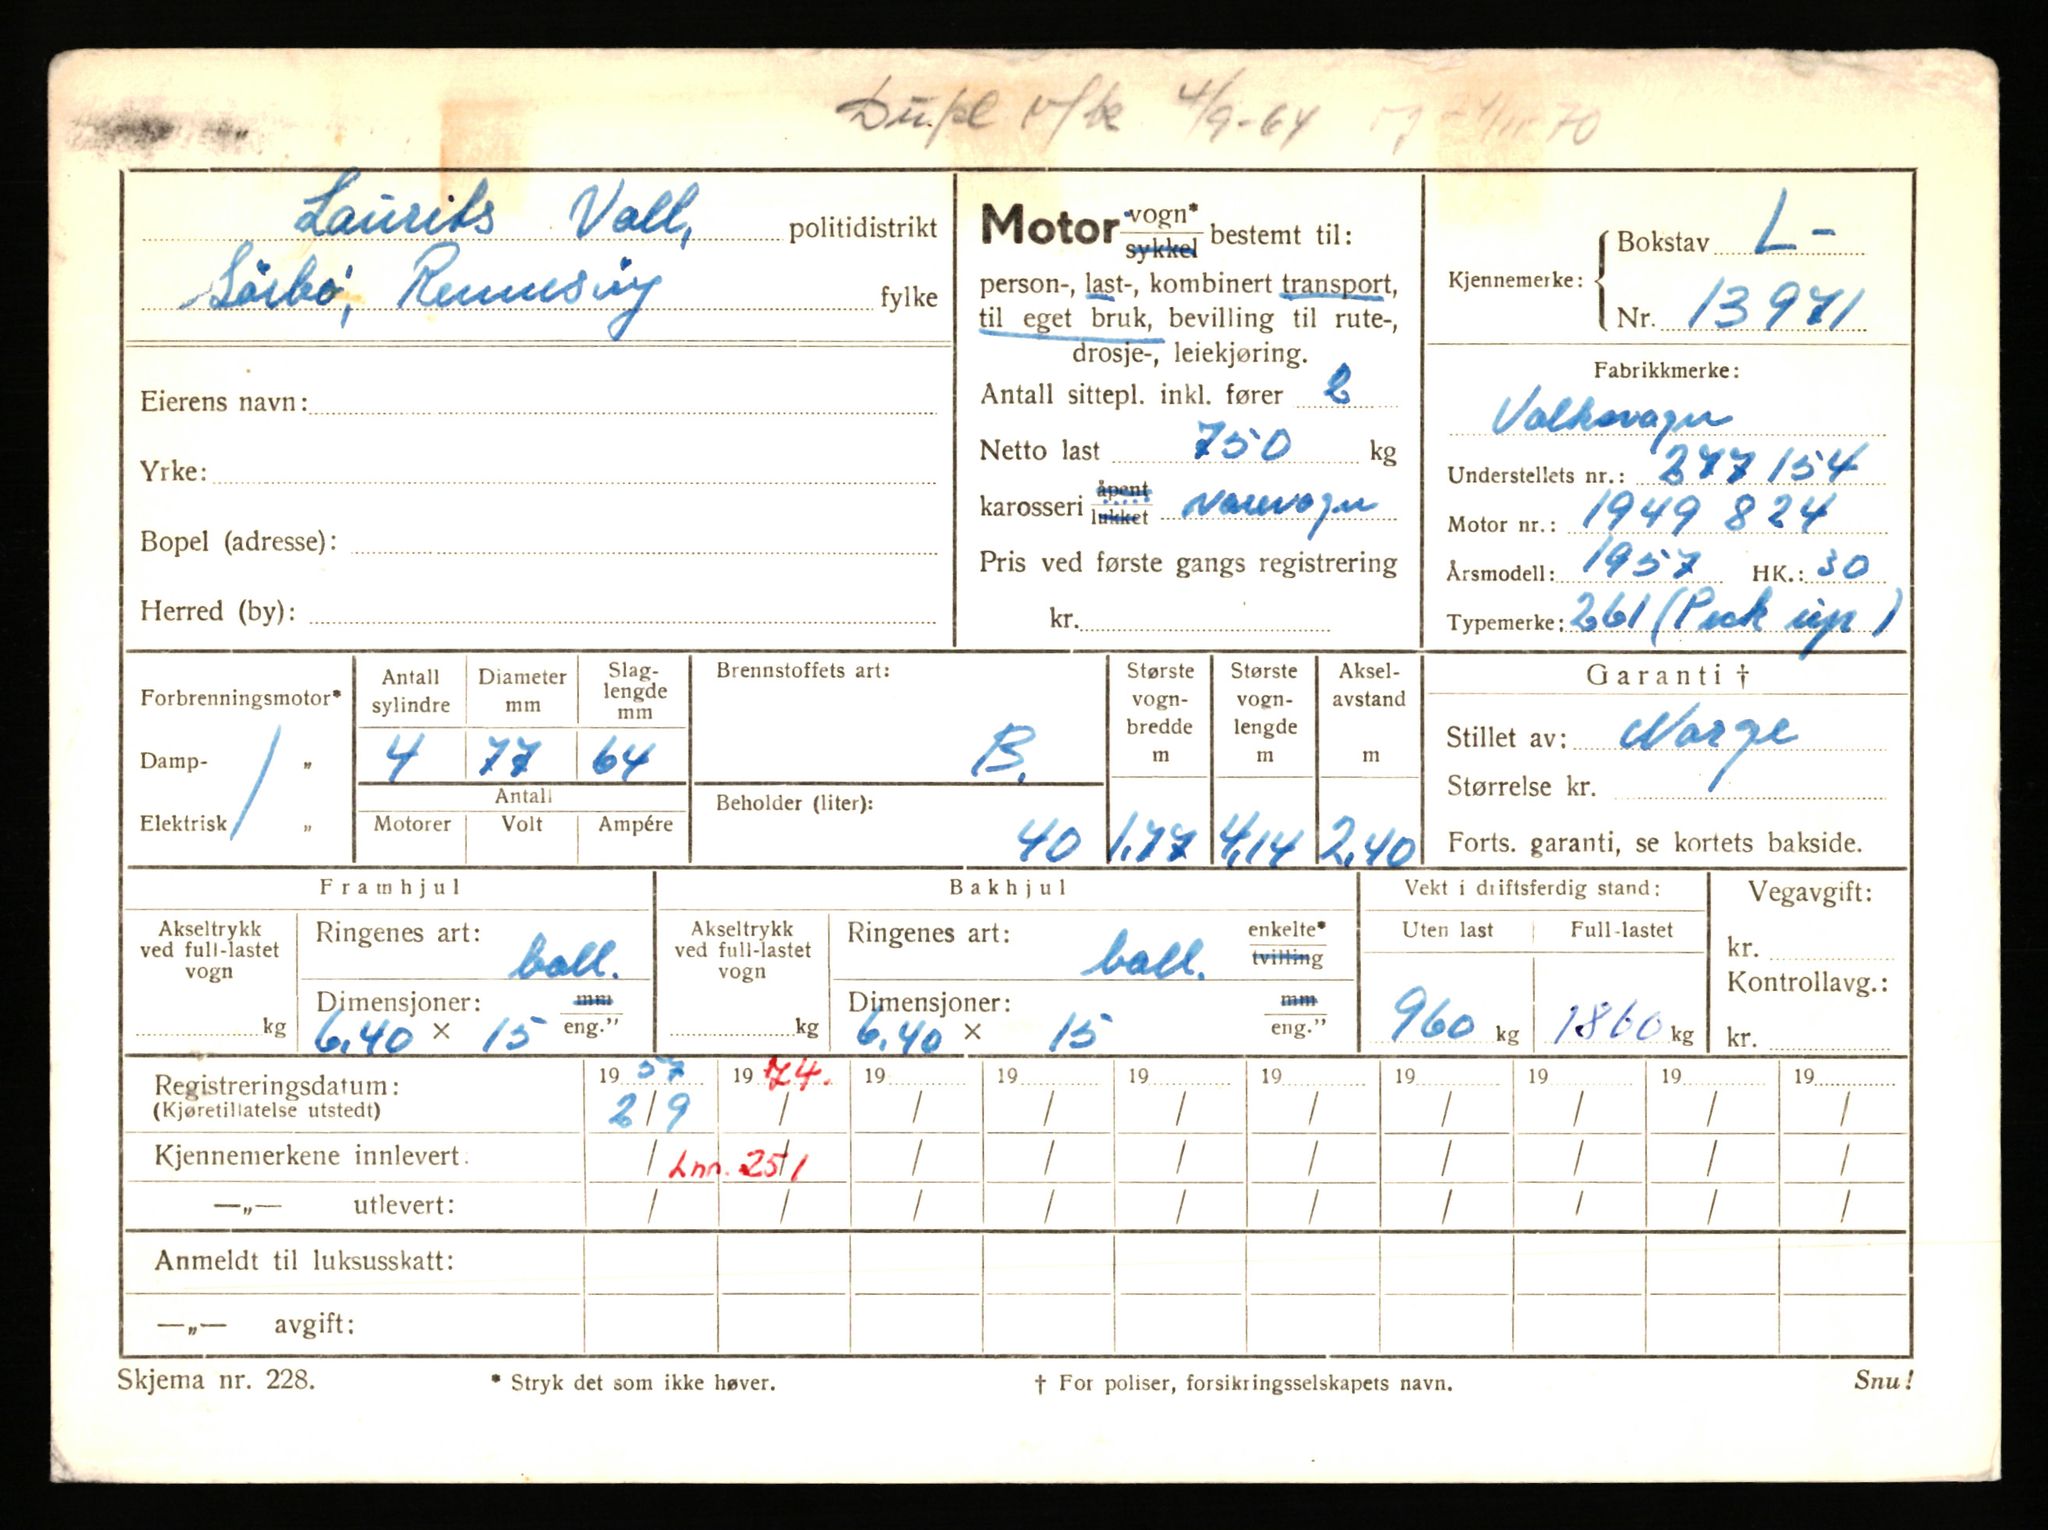 Dupl v/k 4/9-64 og 24/11-70
Laurits Vall, politidistrikt
Sørbø, Rennesøy fylke
Eierens navn:
Yrke:
Bopel (adresse):
Herred (by):
Motor vogn* sykkel bestemt til:
person-, last-, kombinert transport,
til eget bruk, bevilling til rute-,
drosje-, leiekjøring.
Antall sittepl. inkl. fører 2
Netto last 750 kg
karosseri åpent lukket varevogn
Pris ved første gangs registrering
kr.
Kjennemerke: Bokstav L-
Nr. 13971
Fabrikkmerke:
Volksvagn
Understellets nr.: 277154
Motor nr.: 1949 824
Årsmodell: 1957 HK.: 30
Typemerke: 261 (Pick up)
Forbrenningsmotor*
Damp- „
Elektrisk „
Antall sylindre Diameter mm Slag-lengde mm
4 77 64
Antall
Motorer Volt Ampére
Brennstoffets art:
B.
Beholder (liter):
40
Største vogn-bredde m
1,77
Største vogn-lengde m
4,14
Aksel-avstand m
2,40
Garanti †
Stillet av: Norge
Størrelse kr.
Forts. garanti, se kortets bakside.
Framhjul
Akseltrykk ved full-lastet vogn
kg
Ringenes art: ball.
Dimensjoner: mm
6,40 × 15 eng."
Bakhjul
Akseltrykk ved full-lastet vogn
kg
Ringenes art: ball. enkelte* tvilling
Dimensjoner: mm
6,40 × 15 eng."
Vekt i driftsferdig stand:
Uten last Full-lastet
960 kg 1860 kg
Vegavgift:
kr.
Kontrollavg.:
kr.
Registreringsdatum: 19 57 19 74. 19 19 19 19 19 19 19 19
(Kjøretillatelse utstedt) 2/9 / / / / / / / / /
Kjennemerkene innlevert: / Inn. 25/1 / / / / / / / /
—„— utlevert: / / / / / / / / / /
Anmeldt til luksusskatt:
—„— avgift:
Skjema nr. 228. * Stryk det som ikke høver. † For poliser, forsikringsselskapets navn. Snu!